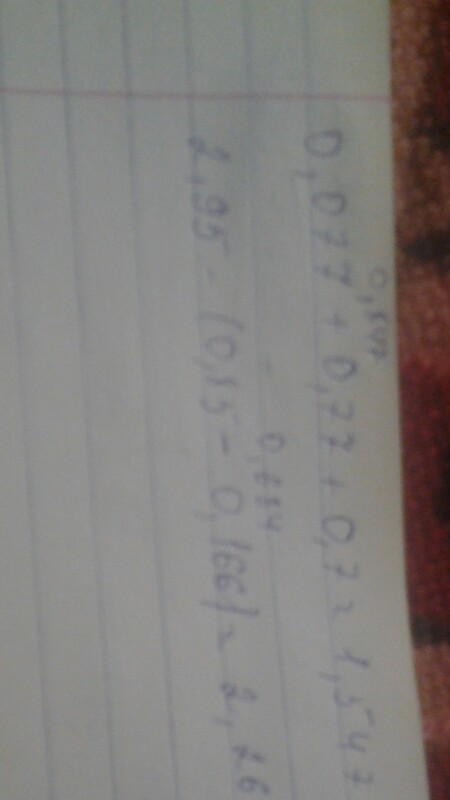 0,847
0,077 + 0,77 + 0,7 = 1,547
0,684
2,95 - (0,85 - 0,166) = 2,26